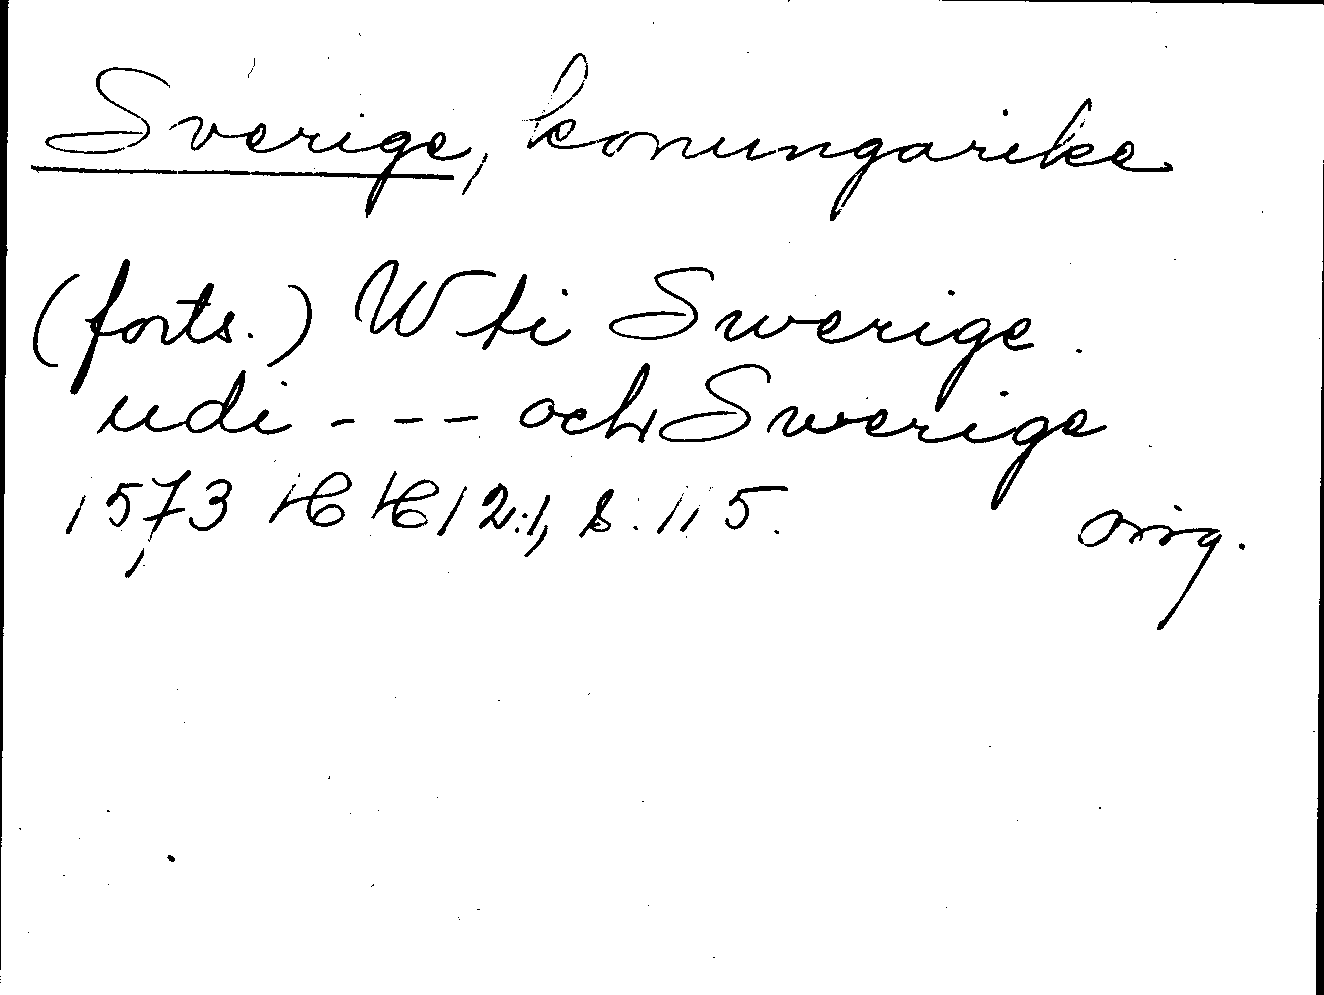 Sverige, konungarike
(forts.) Wti Swerige.
udi - - - och Swerige
1573 HH 12:1, s. 115. orig.